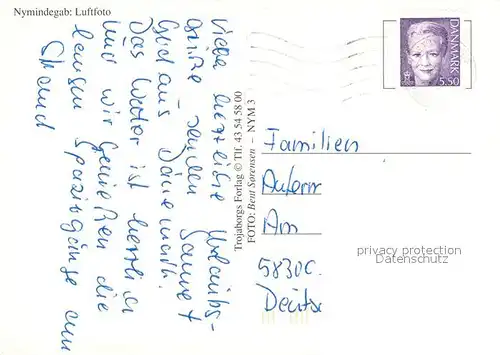 Nymindegab: Luftfoto
Viele herzliche Urlaubs-
grüße senden
Gud aus Dänemark.
Das Wetter ist herrlich
und wir genießen die
langen Spaziergänge am
Strand
Trojaborgs Forlag © Tlf. 43 54 58 00
FOTO: Bent Sørensen – NYM 3
DANMARK
5.50
Familien
Am
5830C.
Deutsc
privacy protection
Datenschutz